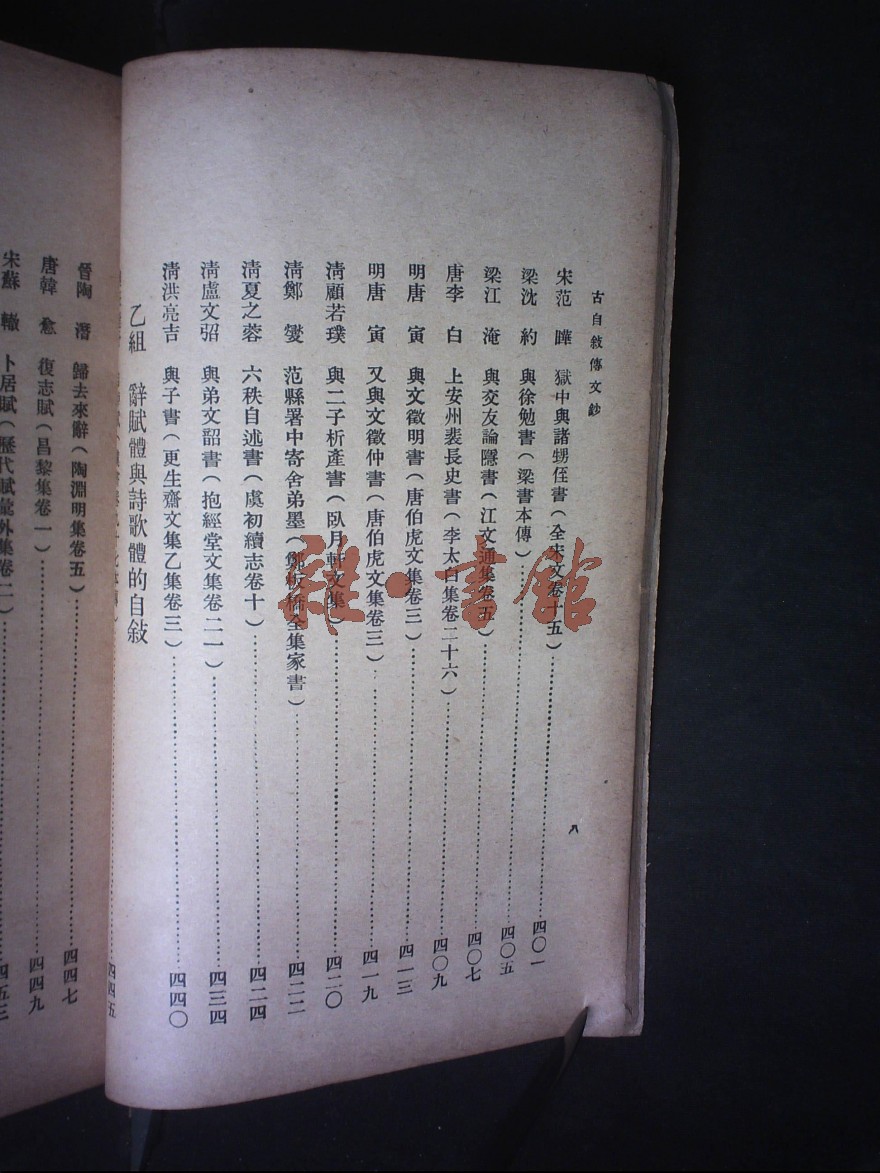 古自敘傳文鈔
八
宋范　曄　獄中與諸甥侄書(全宋文卷十五)……四〇一
梁沈　約　與徐勉書(梁書本傳)……四〇五
梁江　淹　與交友論隱書(江文通集卷五)……四〇七
唐李　白　上安州裴長史書(李太白集卷二十六)……四〇九
明唐　寅　與文徵明書(唐伯虎文集卷三)……四一三
明唐　寅　又與文徵仲書(唐伯虎文集卷三)……四一九
清顧若璞　與二子析產書(臥月軒文集)……四二〇
清鄭　燮　范縣署中寄舍弟墨(鄭板橋全集家書)……四二二
清夏之蓉　六秩自述書(虞初續志卷十)……四二四
清盧文弨　與弟文韶書(抱經堂文集卷二一)……四三四
清洪亮吉　與子書(更生齋文集乙集卷三)……四四〇
乙組　辭賦體與詩歌體的自敍
四四五
晉陶　潛　歸去來辭(陶淵明集卷五)……四四七
唐韓　愈　復志賦(昌黎集卷一)……四四九
宋蘇　轍　卜居賦(歷代賦彙外集卷二)……四五三
雜·書館